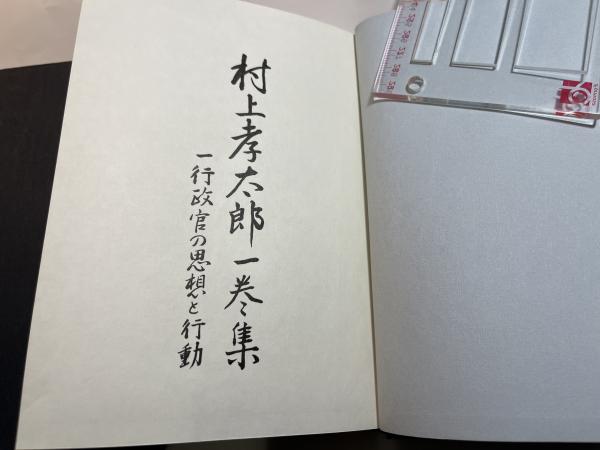 村上孝太郎一巻集
一行政官の思想と行動